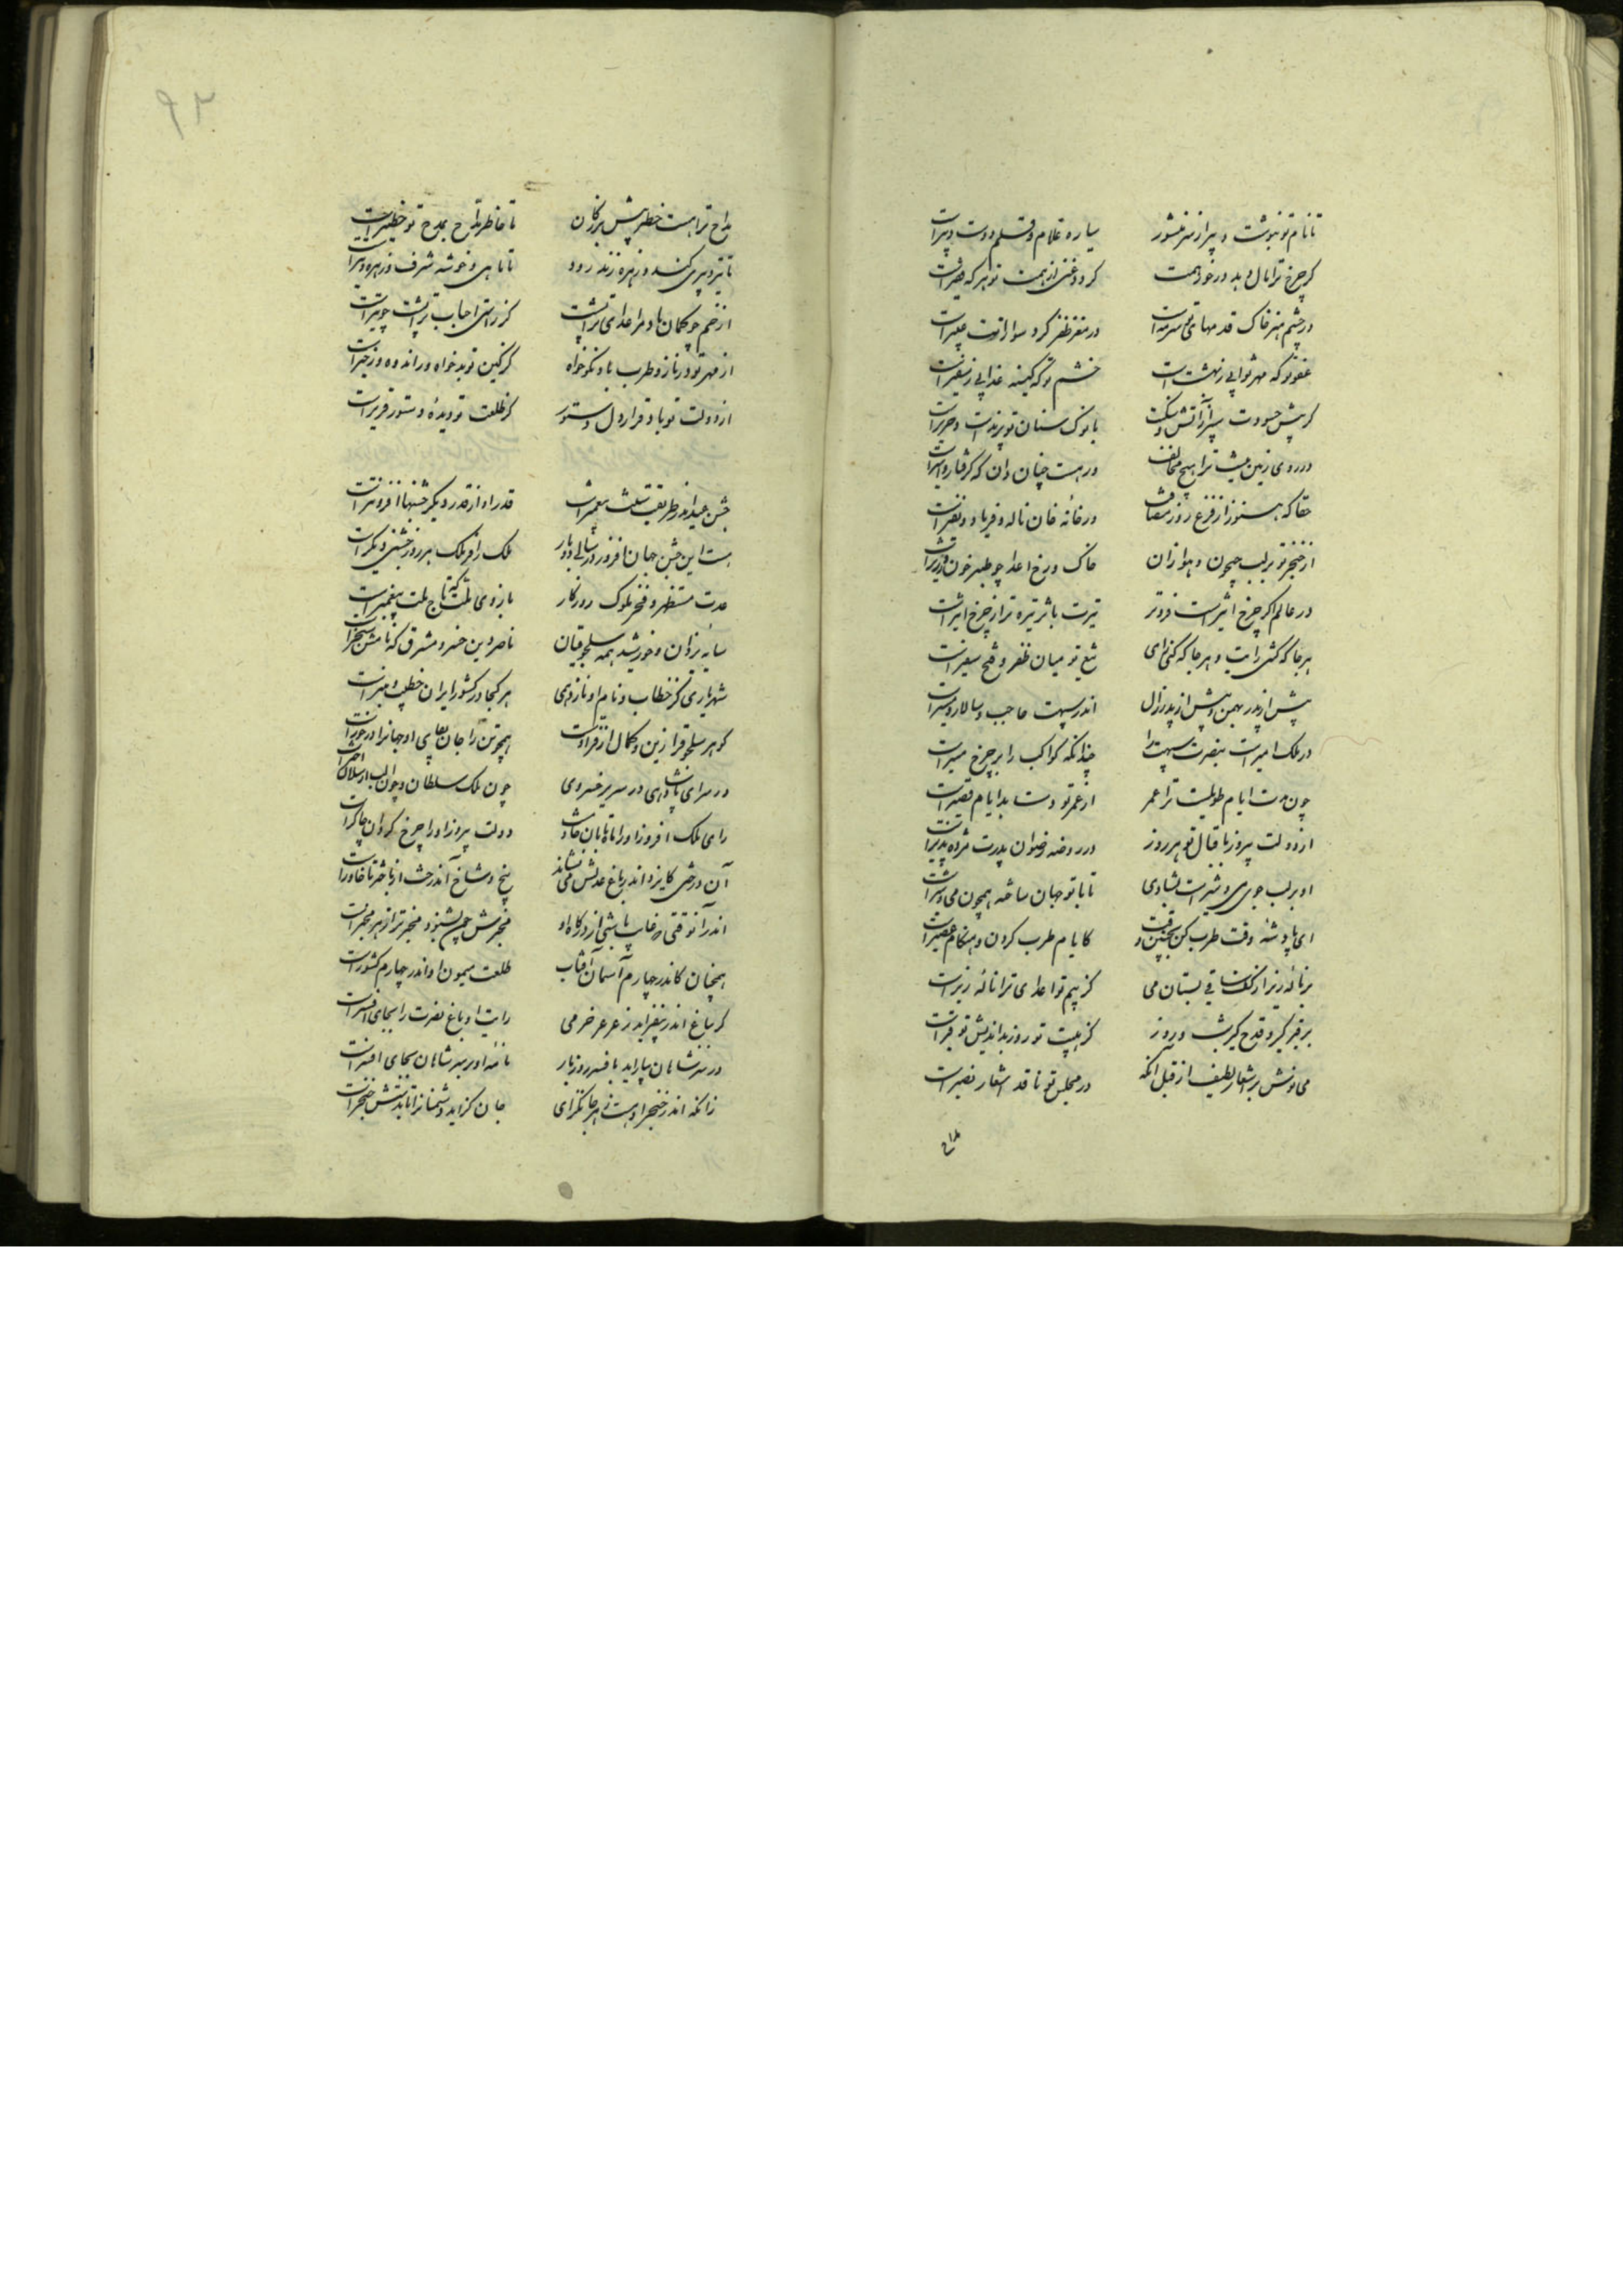 تا نام تو ننوشت دبیر از سر منشور سیاره غلام و قلم دوست دبیر است
گر چرخ ترا مال دهد درخور همت گردد غنی از همت تو هر که فقیر است
در چشم هنر خاک قدمهای تو سرمه است در مغز ظفر گرد سواران تو عبیر است
عفو تو که مهر ثوابی ز بهشت است خشم تو که کینه عذابی ز سعیر است
گر پیش حسودت سپر از آتش و سنگ است با نوک سنان تو پرند است و حریر است
در روی زمین نیست ترا هیچ مخالف ور هست چنان دان که گرفتار و اسیر است
حقا که هنوز از فزع روز مصافت در خانه خان ناله و فریاد و نفیر است
از خنجر تو بر لب جیحون و هوازان خاک و رخ اعدا چو طبرخون و زریر است
در عالم اگر چرخ اثیر است فروتر تیرت باثر تیره تر از چرخ اثیر است
هر جا که کشی رایت و هر جا که کنی رای تیغ تو میان ظفر و فتح سفیر است
پیش از پدر بهمن و پیش از پدر زال اندر سپهت حاجب و سالار و امیر است
در ملک امیر است بنصرت سپهت را چندانکه کواکب را بر چرخ مسیر است
چون مدت ایام طویلست ترا عمر از عمر تو دست بد ایام قصیر است
از دولت پیروز باقبال تو هر روز در روضه رضوان پدرت مژده پذیر است
او بر لب جوی می و شیر است بشادی تا با تو جهان ساخته همچون می و شیر است
ای پادشه وقت طرب کن بچنین وقت کایام طرب کردن و هنگام عصیر است
بر ناله زیر از کف ساقی بستان می کز بیم تو اعدای ترا ناله زیر است
برقیر گیر و قدح گیر شب و روز کز هیبت تو روز بداندیش تو قیر است
می نوش بر اشعار لطیف از قبل آنکه در مجلس تو ناقد اشعار بصیر است
مداح
۹۲
مداح ترا هست خطر پیش بزرگان تا خاطر مداح بمدح تو خطیر است
تا تیر دبیری کند و زهره زند رود تا ماهی و خوشه شرف زهره و تیر است
از خم چو کمان باد مر اعدای ترا پشت کز راستی احباب ترا پشت چو تیر است
از مهر تو در ناز و طرب باد نکوخواه کز کین تو بدخواه در اندوه و زحیر است
از دولت تو باد قرار دل دستور کز طلعت تو دیدهٔ دستور قریر است
جشن عید اندر طریقت پیغمبر است قدر او از قدر دیگر جشنها افزونتر است
هست این جشن جهان افروز در سالی دو بار ملک را از فر ملک هر روز جشنی دیگر است
عدت مستظهر و فخر ملوک روزگار بازوی ملت که تاج ملت پیغمبر است
سایه یزدان و خورشید همه سلجوقیان ناصر دین خسرو مشرق که نامش سنجر است
شهریاری کز خطاب و نام او نازد همی هر کجا در کشور ایران خطیب و منبر است
گوهر سلجوق را زین و کمال از فر اوست همچو تن را جان بقای او جهان را درخور است
در سرای پادشاهی در سریر خسروی چون ملک سلطان و چون الب ارسلان دیگر است
رای ملک افروز او را ماه تابان خادم است دولت پیروز او را چرخ گردان چاکر است
آن درختی کایزد اندر باغ عدلش می نشاند بیخ و شاخ آن درخت از باختر تا خاور است
اندر آن وقتی که غایب باشی از درگاه او مخبرش چون بشنوی مخبر تر از هر مخبر است
همچنان کاندر چهارم آسمان آفتاب طلعت میمون او اندر چهارم کشور است
گر بباغ اندر بیفزاید ز عرعر خرمی رایت او باغ نصرت را بجای عرعر است
ور سر شاهان بیاراید بافسر روز بار نامه او بر سر شاهان بجای افسر است
زانکه اندر خنجر او هست زهر جانگزای جان گزاید دشمنان را تا بدستش خنجر است